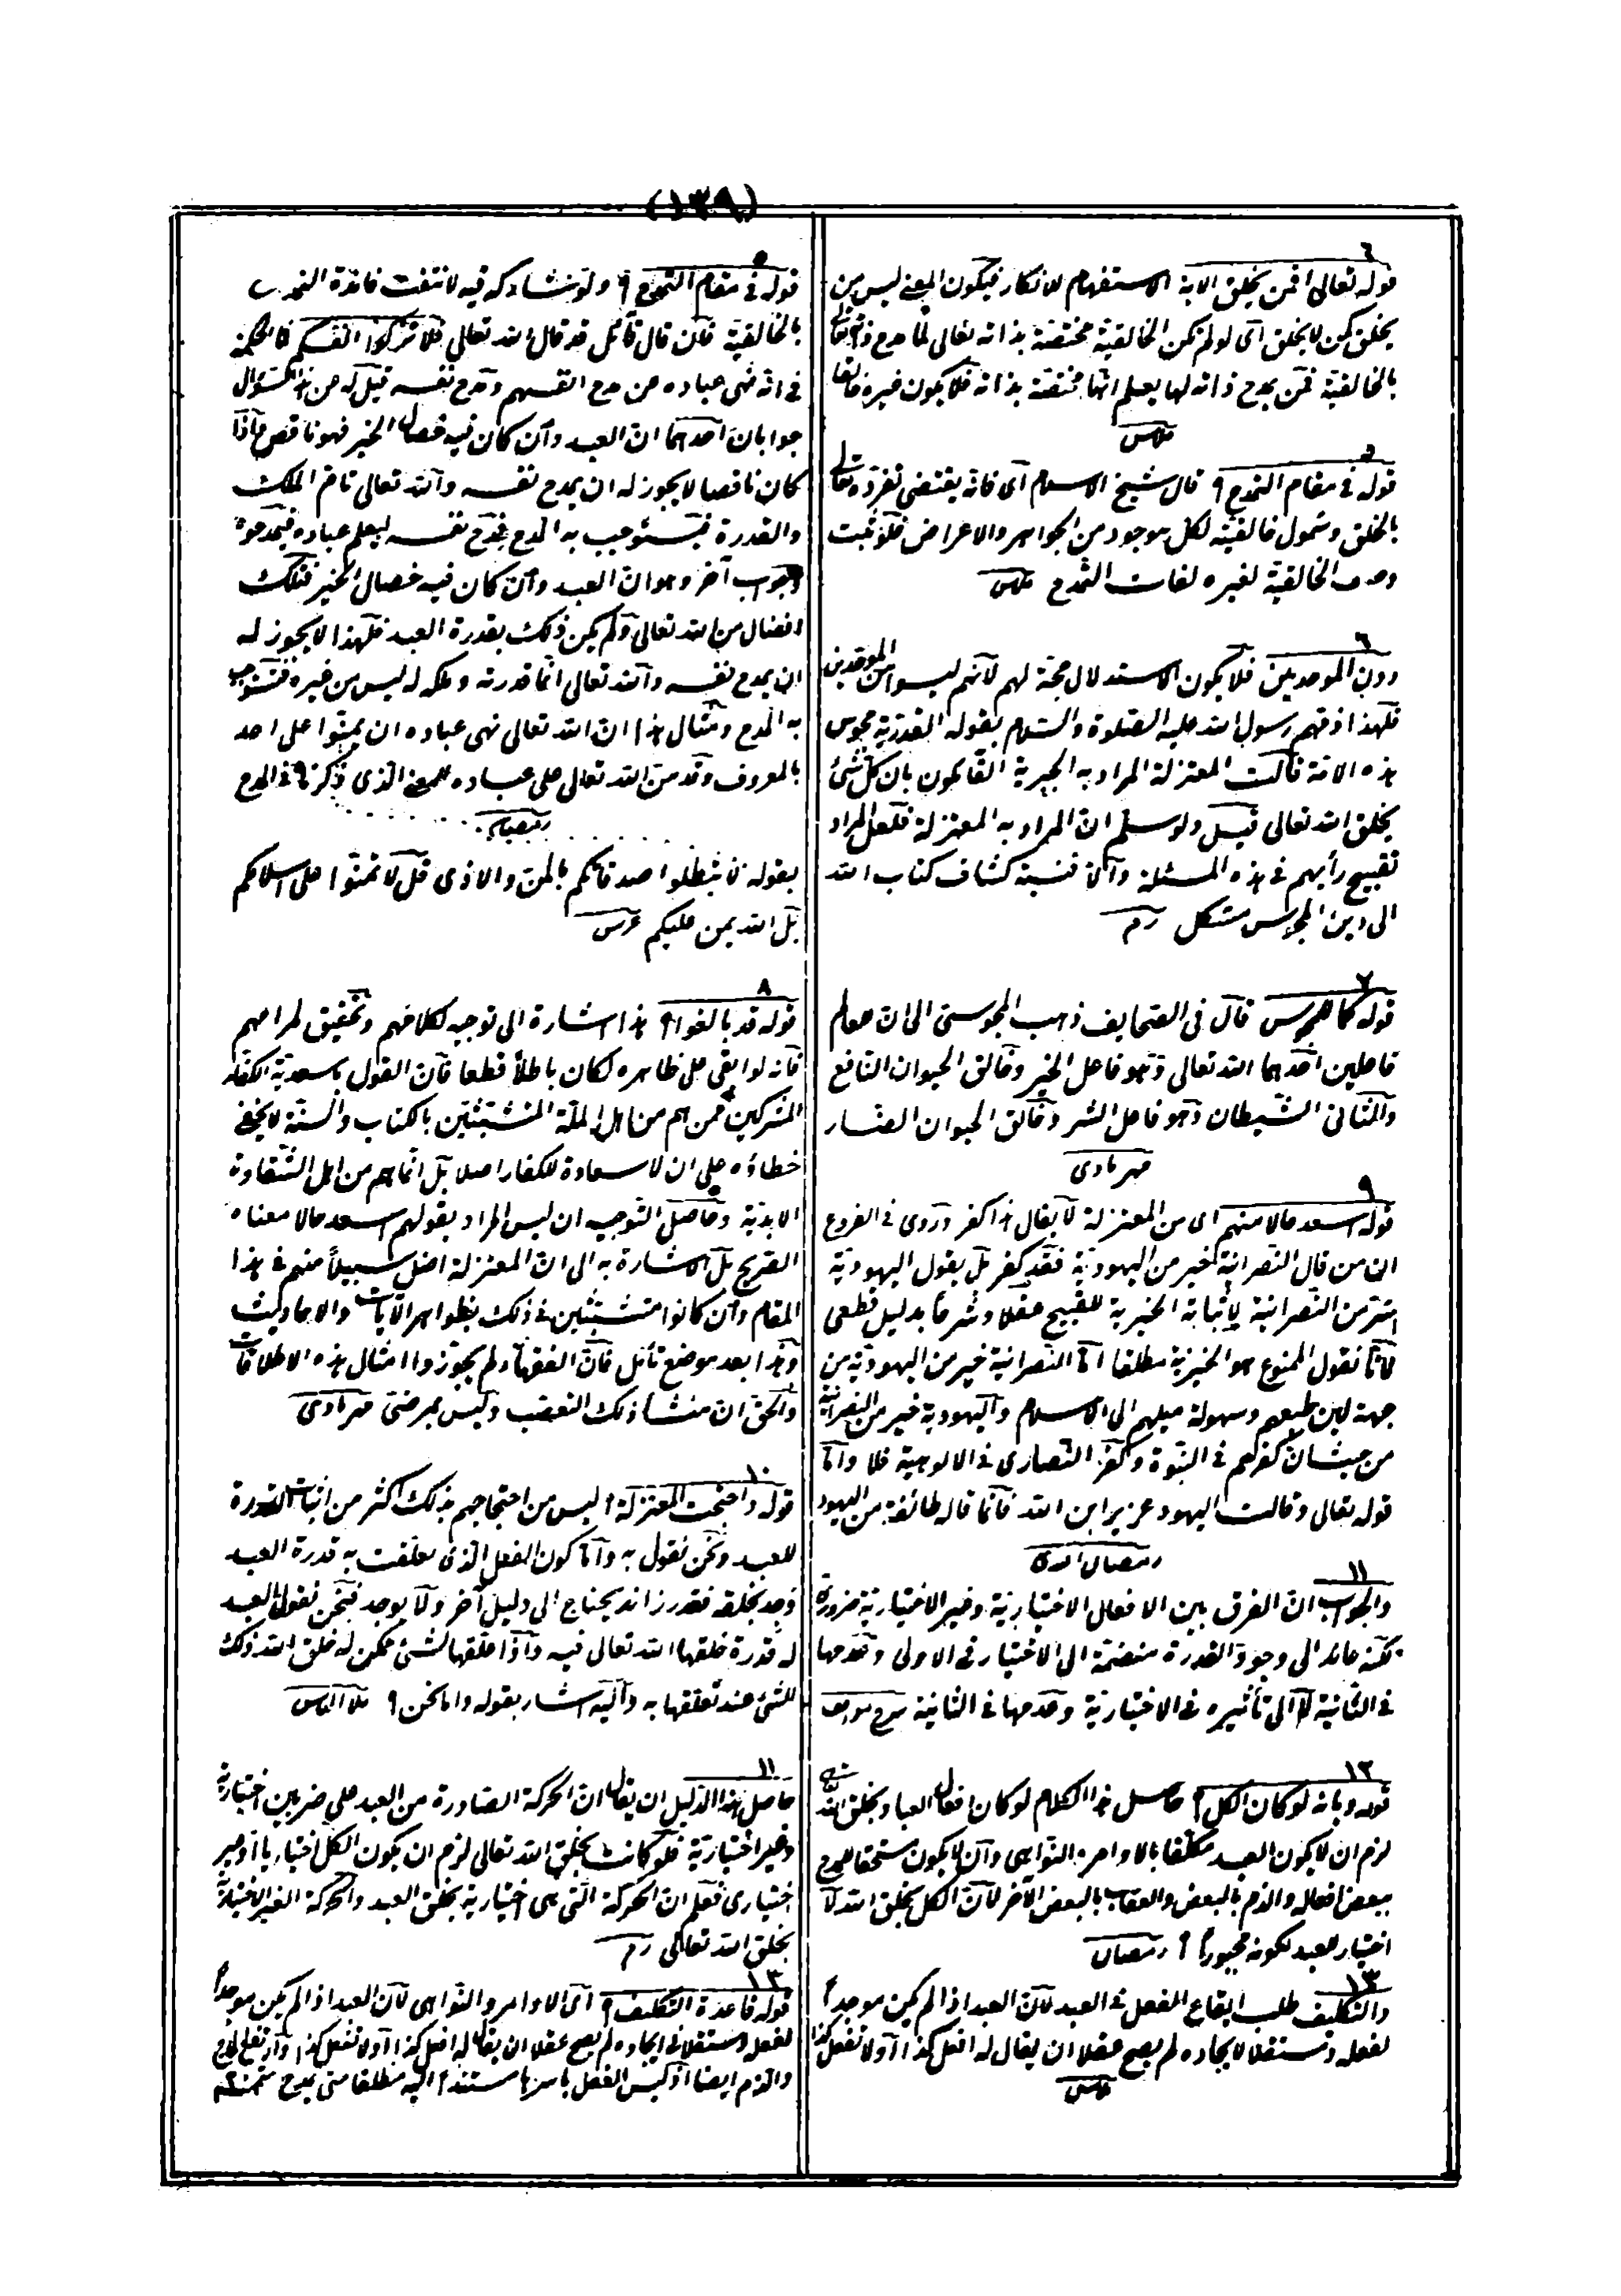 (١٣٩)
٦
قوله تعالى افمن يخلق الاية الاستفهام للانكار فيكون المعنى ليس من
يخلق كمن لا يخلق اى لو لم تكن الخالقية مختصة بذاته تعالى لما مدح ذاته تعالى
بالخالقية فمن يمدح ذاته لها يعلم انها مختصة بذاته فلا يكون غيره خالقا
ملاس
قوله فى مقام التمدح ؟ قال شيخ الاسلام اى فانه يقتضى تفرده تعالى
بالخلق وشمول خالقيته لكل موجود من الجواهر والاعراض فلو ثبت
وصف الخالقية لغيره لفات التمدح ملاس
٦
دون الموحدين فلا يكون الاستدلال حجة لهم لانهم ليسوا من الموحدين
فلهذا ذمهم رسول الله عليه الصلوة والسلام بقوله القدرية مجوس
هذه الامة قالت المعتزلة المراد به الجبرية القائلون بان كل شئ
بخلق الله تعالى قيل ولو سلم ان المراد به المعتزلة فلعل المراد
تقبيح رأيهم فى هذه المسئلة والا فنسبة كشاف كتاب الله
الى دين المجوس مشكل رم
٧
قوله كالمجوس قال فى الصحايف ذهب المجوسى الى ان للعالم
فاعلين احدهما الله تعالى وهو فاعل الخير وخالق الحيوان النافع
والثانى الشيطان وهو فاعل الشر وخالق الحيوان الضار
مهربادى
٩
قوله اسعد حالا منهم اى من المعتزلة لا يقال هذا كفر وروى فى الفروع
ان من قال النصرانية خير من اليهودية فقد كفر بل يقول اليهودية
شر من النصرانية لاثباته الخيرية للقبيح عقلا وشرعا بدليل قطعى
لانا نقول الممنوع هو الخيرية مطلقا اما النصرانية خير من اليهودية من
جهة لين طبعهم وسهولة ميلهم الى الاسلام واليهودية خير من النصرانية
من حيث ان كفرهم فى النبوة وكفر النصارى فى الالوهية فلا واما
قوله تعالى وقالت اليهود عزير ابن الله فانما قاله طائفة من اليهود
رمضان افندى
١١
والجواب ان الفرق بين الافعال الاختيارية وغير الاختيارية ضرورى
لكنه عائد الى وجود القدرة منضمة الى الاختيار فى الاولى وعدمها
فى الثانية لا الى تأثيره فى الاختيارية وعدمها فى الثانية شرح مواقف
١٢
قوله وبانه لو كان الكل ؟ حاصل هذا الكلام لو كان افعال العباد بخلق الله
لزم ان لا يكون العبد مكلفا بالاوامر والنواهى وان لا يكون مستحقا للمدح
ببعض افعاله والذم بالبعض والعقاب بالبعض الآخر لان الكل بخلق الله لا
اختيار للعبد لكونه مجبورا ؟ رمضان
١٣
والتكليف طلب ايقاع الفعل فى العبد لان العبد اذا لم يكن موجدا
لفعله ومستقلا لايجاده لم يصح عقلا ان يقال له افعل كذا او لا تفعل كذا
ملاس
٥
قوله فى مقام التمدح ؟ ولو شاركه فيه لانتفت فائدة التمدح
بالخالقية فان قال قائل قد قال الله تعالى فلا تزكوا انفسكم فما الحكمة
فى انه نهى عباده عن مدح انفسهم ومدح نفسه قيل له عن هذا السؤال
جوابان احدهما ان العبد وان كان فيه خصال الخير فهو ناقص فاذا
كان ناقصا لا يجوز له ان يمدح نفسه والله تعالى تام الملك
والقدرة فيستوجب به المدح فمدح نفسه ليعلم عباده فيمدحوه
وجواب آخر وهو ان العبد وان كان فيه خصال الخير فتلك
افضال من الله تعالى ولم يكن ذلك بقدرة العبد فلهذا لا يجوز له
ان يمدح نفسه والله تعالى انما قدرته وملكه له ليس من غيره فتستوجب
به المدح ومثال هذا ان الله تعالى نهى عباده ان يمنوا على احد
بالمعروف وقد من الله تعالى على عباده للمعنى الذى ذكرنا فى المدح
بقوله لا تبطلوا صدقاتكم بالمن والاذى قل لا تمنوا على اسلامكم
بل الله يمن عليكم عرس
٨
قوله قد بالغوا ؟ هذا اشارة الى توجيه لكلامهم وتحقيق لمرامهم
فانه لو ابقى على ظاهره لكان باطلا قطعا فان القول باسعدية الكفار
المشركين ممن هم من اهل الملة المتشبثين بالكتاب والسنة لا يخفى
خطاؤه على ان لا سعادة للكفار اصلا بل انما هم من اهل الشقاوة
الابدية وحاصل التوجيه ان ليس المراد بقولهم اسعد حالا معناه
الصريح بل الاشارة به الى ان المعتزلة اضل سبيلا منهم فى هذا
المقام وان كانوا متشبثين فى ذلك بظواهر الآيات والاحاديث
وهذا بعد موضع تأمل فان الفقهاء لم يجوزوا امثال هذه الاطلاقات
والحق ان منشأ ذلك التعصب وليس بمرضى مهربادى
١٠
قوله واحتجت المعتزلة ؟ ليس من احتجاجهم بذلك اكثر من اثبات القدرة
للعبد ونحن نقول به واما كون الفعل الذى تعلقت به قدرة العبد
وجد بخلقه فقدر زائد يحتاج الى دليل آخر ولا يوجد فنحن نقول للعبد
له قدرة خلقها الله تعالى فيه واذا خلقها لشئ ممكن له خلق الله ذلك
الشئ عند تعلقها به واليه اشار بقوله واما نحن ؟ ملا الياس
١١
حاصل هذا الدليل ان يقال ان الحركة الصادرة من العبد على ضربين اختيارية
وغير اختيارية فلو كانت بخلق الله تعالى لزم ان يكون الكل اختياريا او غير
اختيارى فعلم ان الحركة التى هى اختيارية بخلق العبد والحركة الغير الاختيارية
بخلق الله تعالى رم
١٣
قوله قاعدة التكليف ؟ اى الاوامر والنواهى لان العبد اذا لم يكن موجدا
لفعله ومستقلا فى ايجاده لم يصح عقلا ان يقال له افعل كذا او لا تفعل كذا وارتفع المدح
والذم ايضا اذ ليس الفعل باسرها مستندا اليه مطلقا حتى يمدح